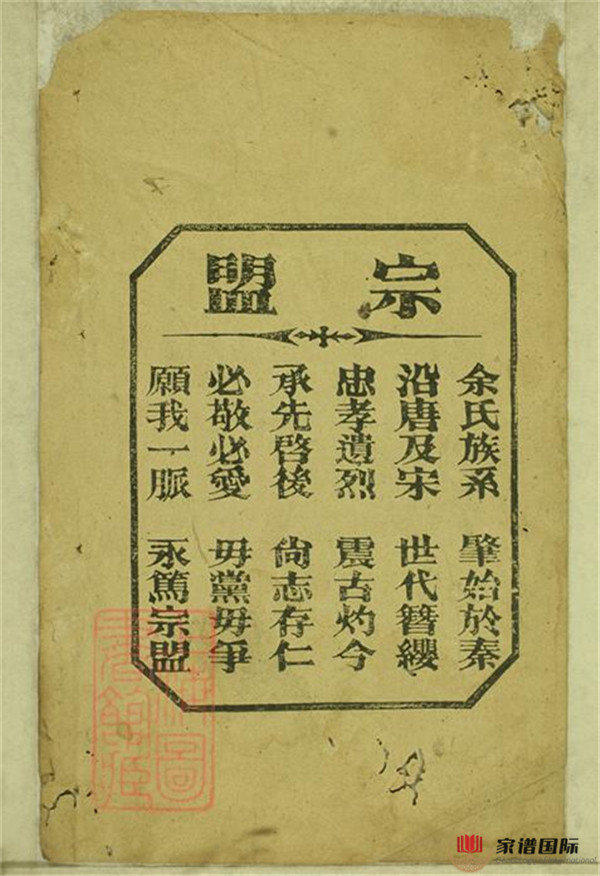 宗盟
余氏族系 肇始於秦
沿唐及宋 世代簪纓
忠孝遺烈 震古灼今
承先啓後 尚志存仁
必敬必愛 毋黨毋爭
願我一脈 永篤宗盟
家谱国际